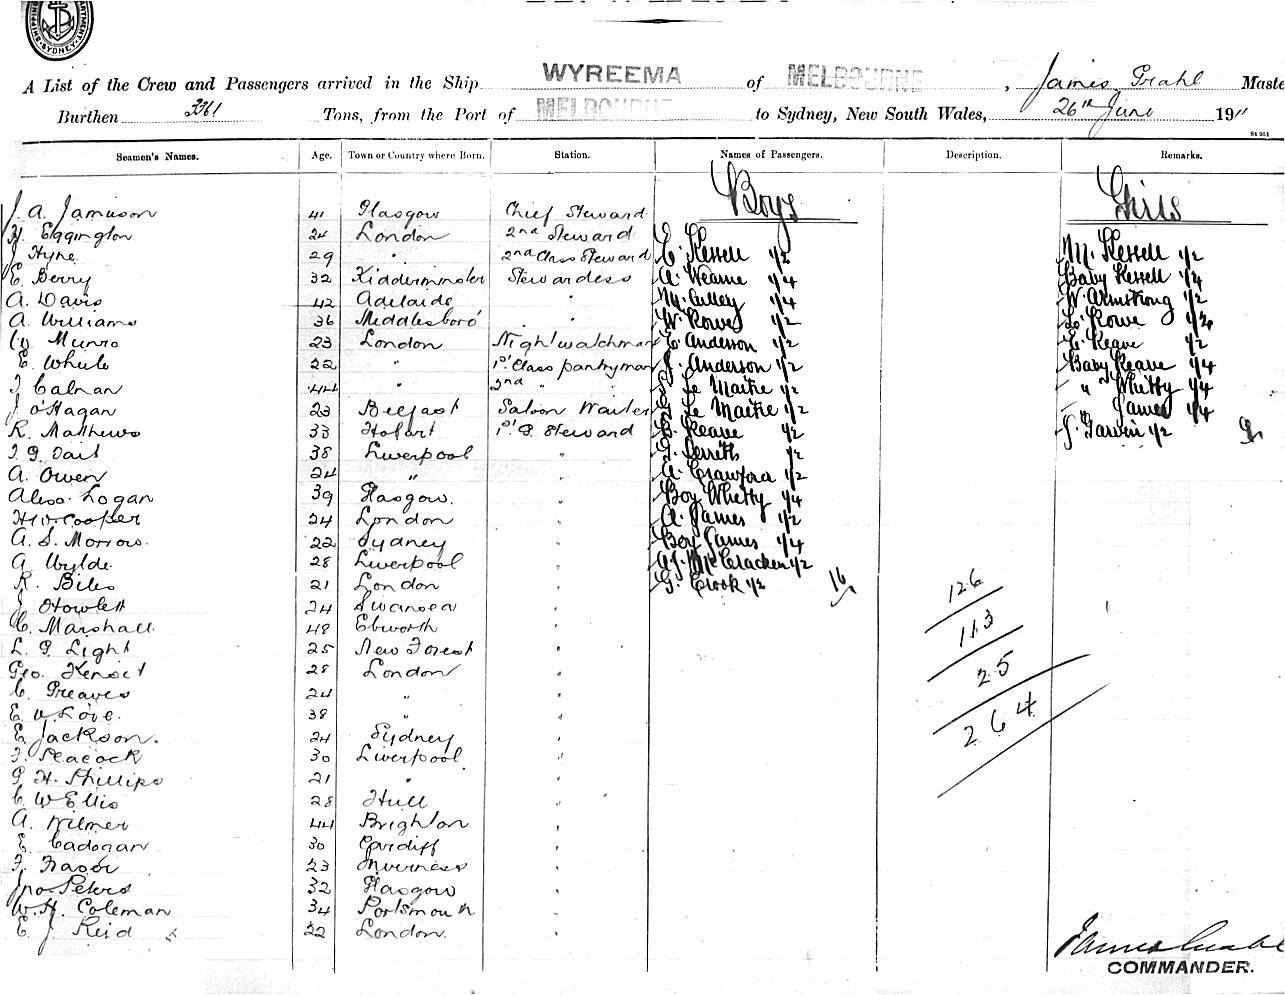 A List of the Crew and Passengers arrived in the Ship WYREEMA of MELBOURNE, James Grahl Maste
Burthen 3361 Tons, from the Port of MELBOURNE to Sydney, New South Wales, 26th June 1911
St 951
Seamen's Names. Age. Town or Country where Born. Station. Names of Passengers. Description. Remarks.
Boys Girls
J. A. Jamieson 41 Glasgow Chief Steward
H. Eggington 24 London 2nd Steward
J Hyne 29 " 2nd Class Steward E. Kessell 1/2 M. Kessell 1/2
E. Berry 32 Kidderminster Stewardess A. Wearne 1/4 Baby Kessell 1/4
A. Davis 42 Adelaide " M. Culley 1/4 W. Armstrong 1/2
A. Williams 36 Middlesboro' " W. Rowe 1/2 L. Rowe 1/2
W. Munro 23 London Nightwatchman E. Anderson 1/2 E. Keave 1/2
E. While 22 " 1st Class pantryman J. Anderson 1/2 Baby Keave 1/4
J. Calnan 44 " 2nd " " Le Maitre 1/2 " Whitty 1/4
J. O'Hagan 23 Belfast Saloon Waiter Le Maitre 1/2 " James 1/4
R. Matthews 33 Hobart 1st S. Steward Keave 1/2 J. Garvin 1/2 9
T. G. Tait 38 Liverpool " 1/2
A. Owen 24 " " A. Crawford 1/2
Alex. Logan 39 Glasgow. " Boy Whitty 1/4
H. W. Cooper 24 London " A. James 1/2
A. S. Morrow. 22 Sydney " Boy James 1/4
A. Wylde. 28 Liverpool " A. J. McCracken 1/2
R. Biles 21 London " G. Crook 1/2 16 126
J Howlett 24 Swansea "
C. Marshall. 48 Ebworth " 113
L. G. Light 25 New Forest "
Geo. Kensit 28 London " 25
C. Greaves 24 " "
E. V. Love. 38 " " 264
E. Jackson. 24 Sydney "
J. Peacock 30 Liverpool. "
G. H. Phillips 21 " "
C. W Ellis 28 Hull "
A. Wilmer 44 Brighton "
E. Cadogan 30 Cardiff "
F. Fraser 23 Inverness "
Jno Peters 32 Glasgow "
W. H. Coleman 34 Portsmouth "
E. J. Reid 22 London. "
James Grahl
COMMANDER.